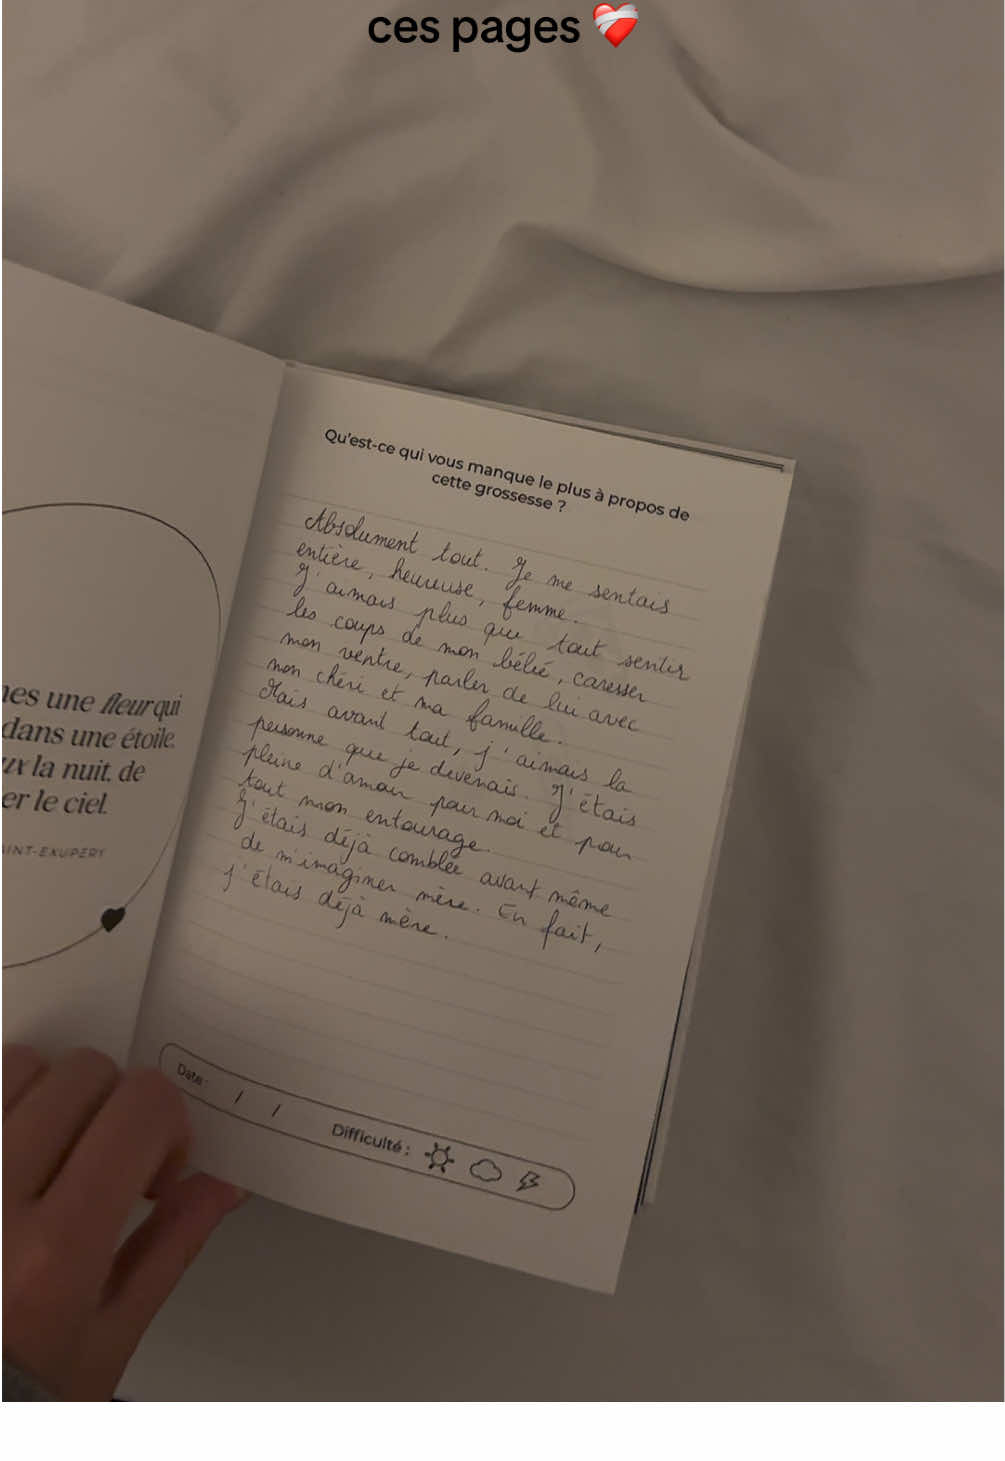 ces pages ❤️‍🩹
Qu'est-ce qui vous manque le plus à propos de
cette grossesse ?
Absolument tout. Je me sentais
entière, heureuse, femme.
J'aimais plus que tout sentir
les coups de mon bébé, caresser
mon ventre, parler de lui avec
mon chéri et ma famille.
Mais avant tout, j'aimais la
personne que je devenais. J'étais
pleine d'amour pour moi et pour
tout mon entourage.
J'étais déjà comblée avant même
de m'imaginer mère. En fait,
j'étais déjà mère.
Date : / /
Difficulté :
une fleur qui
dans une étoile,
la nuit, de
le ciel.